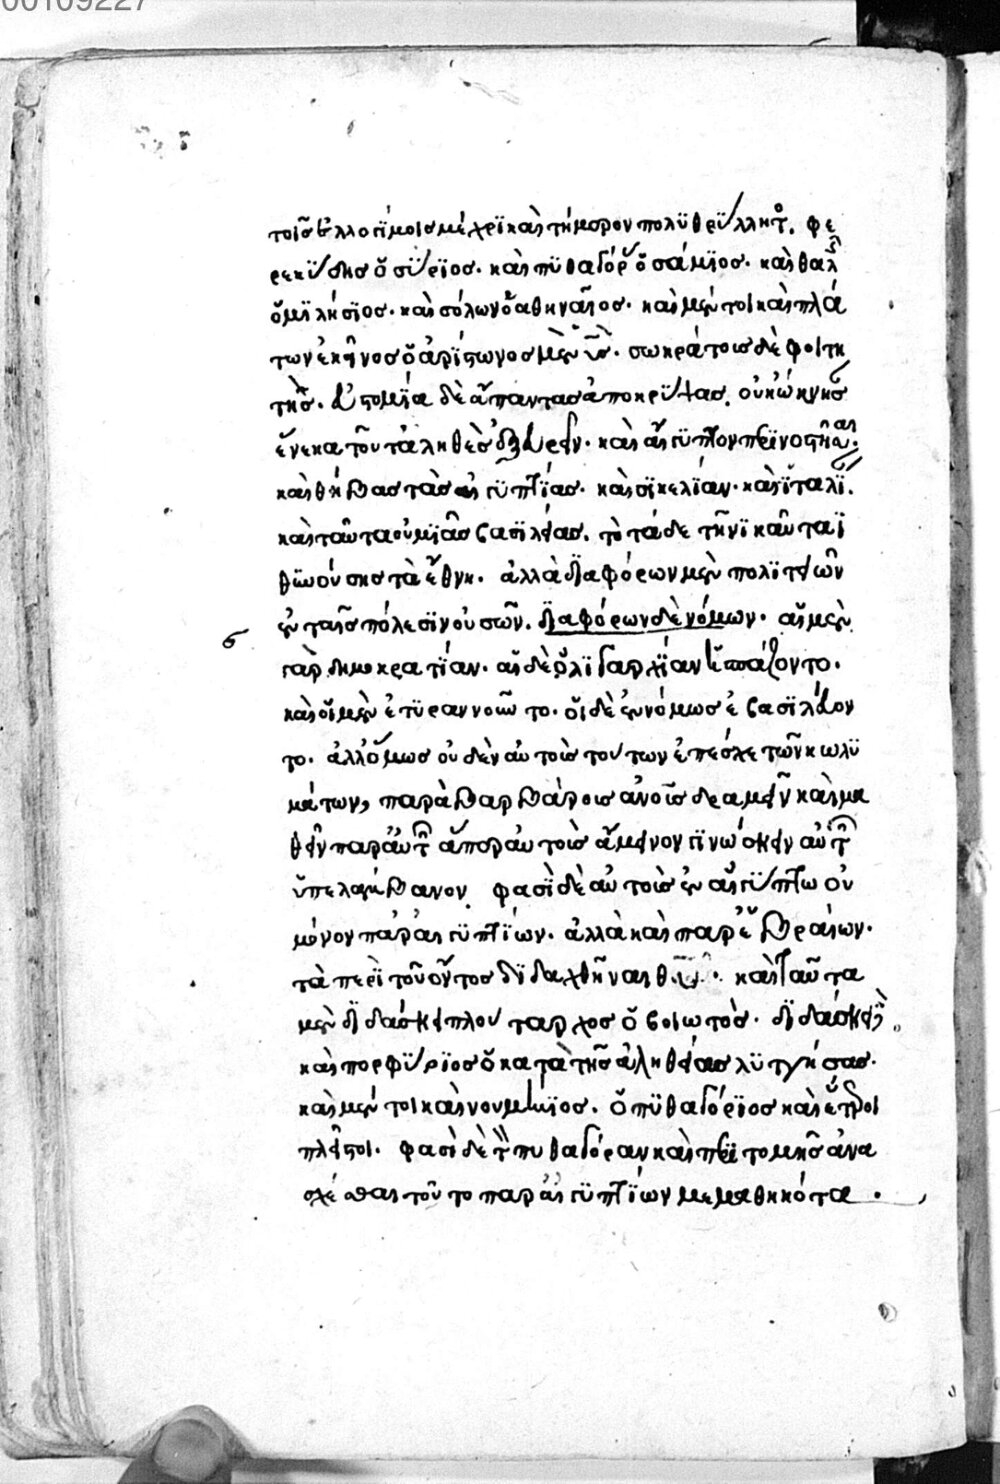 00109227
τοῖς ἐλλογίμοις μέχρι καὶ τήμερον πολυθρύλλητ(ος). φε
ρεκύδης ὁ σύριος. καὶ πυθαγόρ(ας) ὁ σάμιος. καὶ θαλ(ῆς)
ὁ μιλήσιος. καὶ σόλων ὁ ἀθηναῖος. καὶ μέν τοι καὶ πλά
των ἐκεῖνος ὁ ἀρίστωνος μὲν υἱὸς. σωκράτους δὲ φοιτη
τής. εὐστομία δὲ ἅπαντας ἀποκρύψας. οὐκ ὤκνησ(εν)
ἕνεκα τοῦ τἀληθὲς εὑρεῖν. καὶ αἴγυπτον περινοστῆσαι.
καὶ θήβας τὰς αἰγυπτίας. καὶ σικελίαν. καὶ ἰταλί(αν).
καὶ ταῦτα οὐ μιᾶς βασιλείας. τὸ τάδε τηνικαῦτα ἰ
θϋνούσης τὰ ἔθνη. ἀλλὰ διαφόρων μὲν πολιτειῶν
ἐν ταῖς πόλεσιν οὐσῶν. διαφόρων δὲ νόμων. αἱ μὲν
γὰρ δημοκρατίαν. αἱ δὲ ὀλιγαρχίαν ἠσπάζοντο.
καὶ οἱ μὲν ἐτυραννοῦντο. οἱ δὲ ἐννόμως ἐβασιλεύον
το. ἀλλ' ὅμως οὐδὲν αὐτοὺς τούτων ἐπέσχε τῶν κωλυ
μάτων, παρὰ βαρβάρους ἀνους δραμεῖν καὶ μα
θεῖν παρ' αὐτῶν ἅπερ αὐτοὺς ἄμεινον γινώσκειν αὐτῶν
ὑπελάμβανον. φασὶ δὲ αὐτοὺς ἐν αἰγύπτω οὐ
μόνον παρ' αἰγυπτίων. ἀλλὰ καὶ παρ' ἑβραίων.
τὰ περὶ τοῦ ὄντος διδαχθῆναι θυ. καὶ ταῦτα
μὲν διδάσκει πλούταρχος ὁ βοιωτὸς. διδάσκει
καὶ πορφύριος ὁ κατὰ τῆς ἀληθείας λυττήσας.
καὶ μέν τοι καὶ νουμήνιος. ὁ πυθαγόριος καὶ ἕτεροι
πλεῖστοι. φασὶ δὲ τὸν πυθαγόραν καὶ περιτομῆς ἀνα
σχέσθαι τοῦτο παρ' αἰγυπτίων μεμαθηκότα.